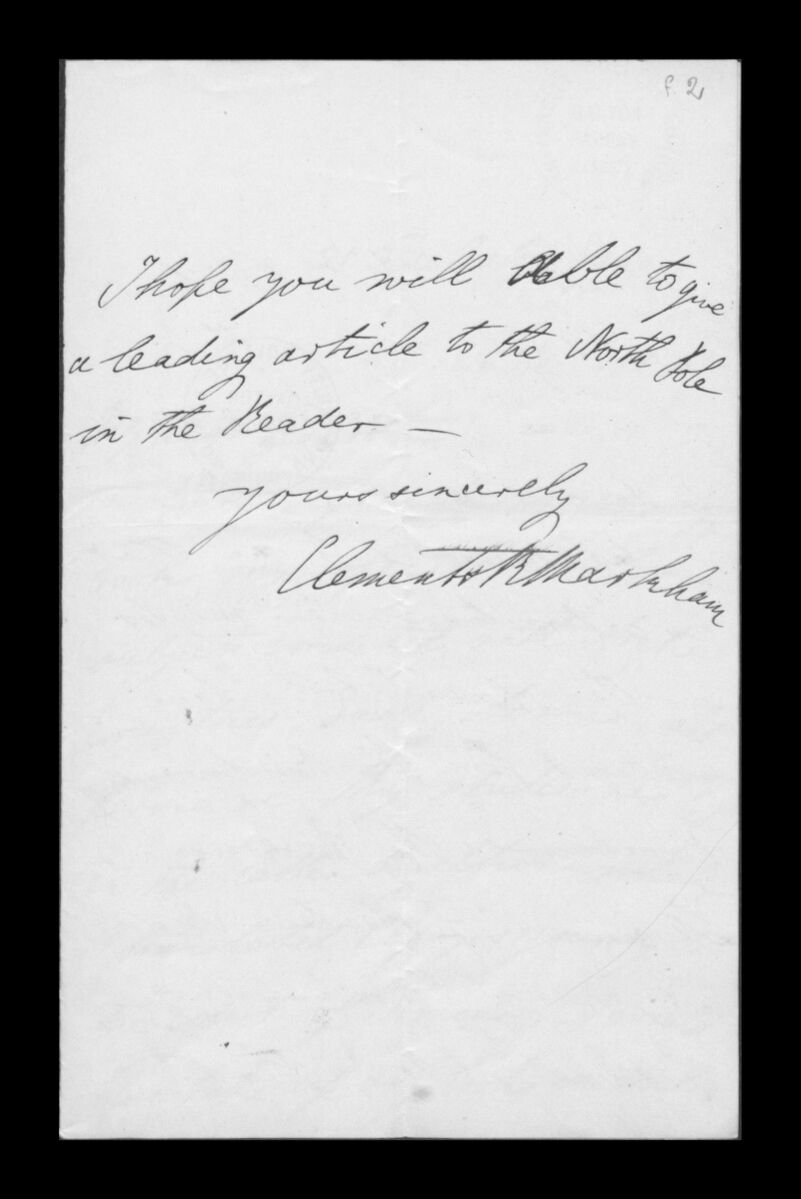 f. 2
I hope you will able to give
a leading article to the North Pole
in the Reader —
yours sincerely
Clements R Markham